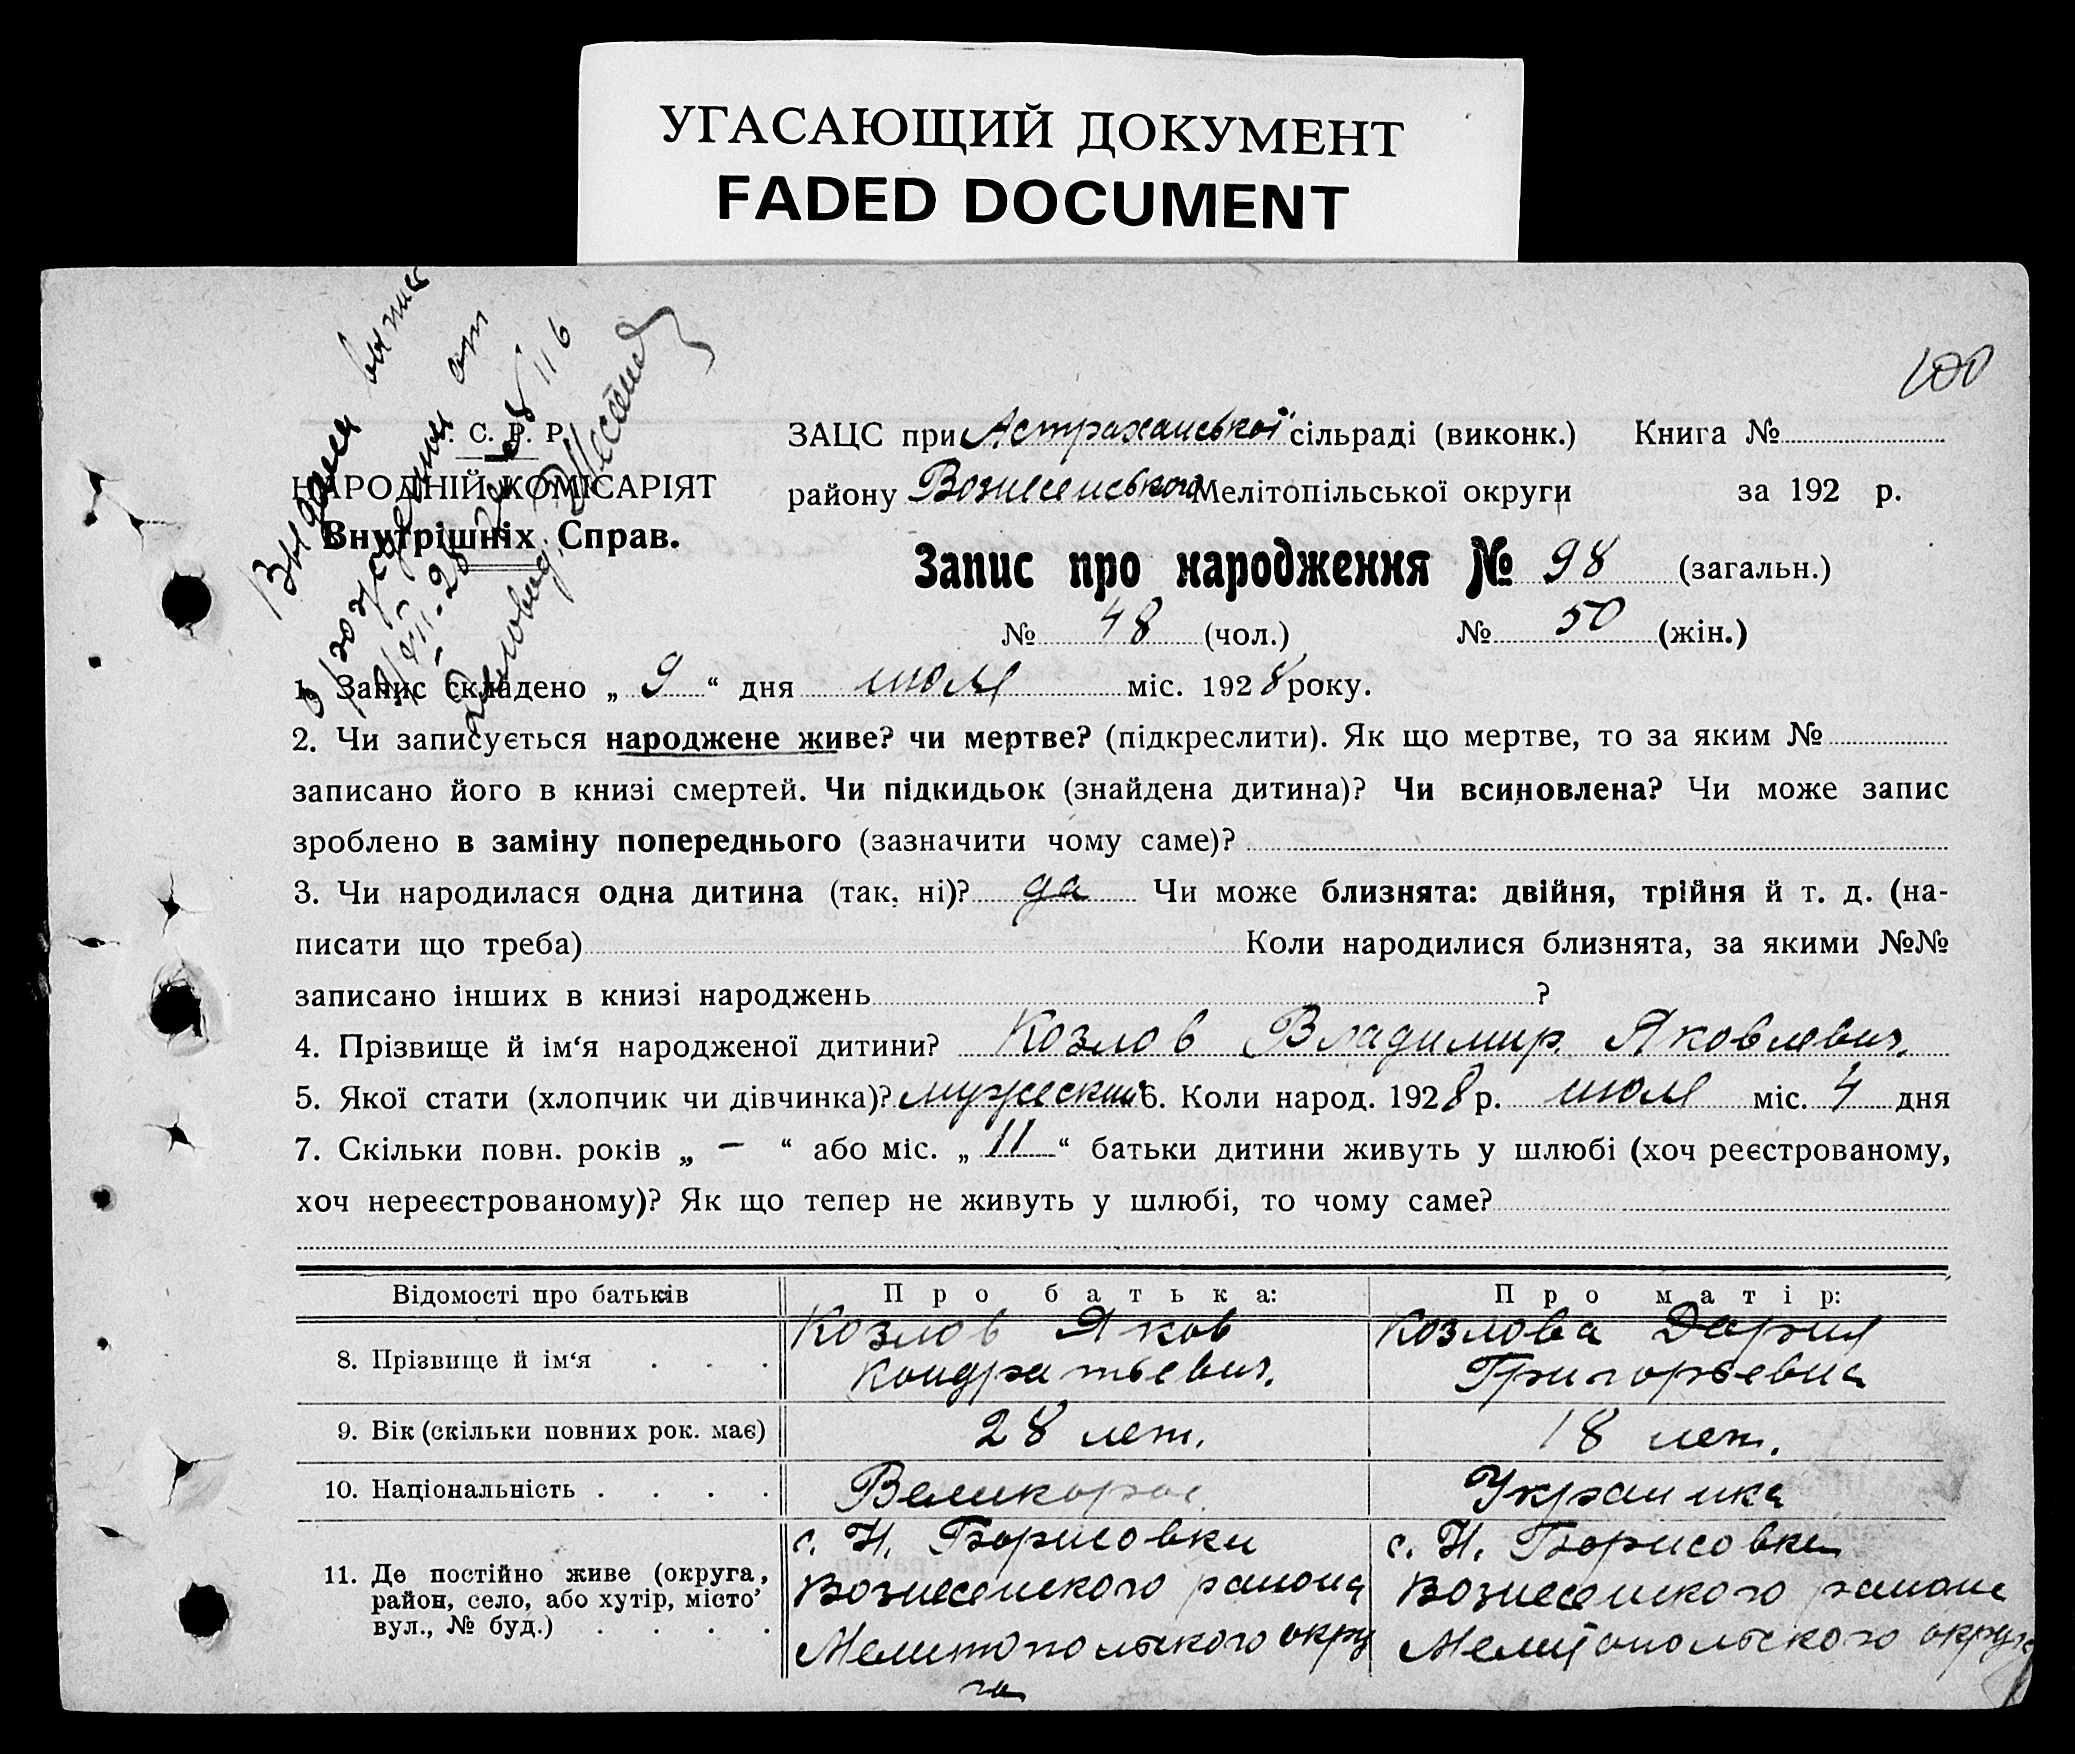 УГАСАЮЩИЙ ДОКУМЕНТ
FADED DOCUMENT
100
Выдана выпис
о рождении от
С. Р. Р.
НАРОДНІЙ КОМІСАРІЯТ
Внутрішніх Справ.
ЗАЦС при Астраханської сільраді (виконк.) Книга №
району Вознесенського Мелітопільської округи за 192 р.
Запис про народження № 98 (загальн.)
№ 48 (чол.) № 50 (жін.)
1. Запис складено „ 9 “ дня июля міс. 1928 року.
2. Чи записується народжене живе? чи мертве? (підкреслити). Як що мертве, то за яким №
записано його в книзі смертей. Чи підкидьок (знайдена дитина)? Чи всиновлена? Чи може запис
зроблено в заміну попереднього (зазначити чому саме)?
3. Чи народилася одна дитина (так, ні)? да Чи може близнята: двійня, трійня й т. д. (на-
писати що треба) Коли народилися близнята, за якими №№
записано інших в книзі народжень ?
4. Прізвище й ім‘я народженої дитини? Козлов Владимир Яковлевич.
5. Якої стати (хлопчик чи дівчинка)? мужеский 6. Коли народ. 1928 р. июля міс. 4 дня
7. Скільки повн. років „ — “ або міс. „ 11 “ батьки дитини живуть у шлюбі (хоч реєстрованому,
хоч нереєстрованому)? Як що тепер не живуть у шлюбі, то чому саме?
Відомості про батьків Про батька: Про матір:
8. Прізвище й ім‘я . . . Козлов Яков Козлова Дария
Кондратьевич. Григорьевна
9. Вік (скільки повних рок. має) 28 лет. 18 лет.
10. Національність . . . . Великорос. Украинка
11. Де постійно живе (округа, район, село, або хутір, місто, вул., № буд.) . . . .
с. Н. Борисовки с. Н. Борисовки
Вознесенского района Вознесенского района
Мелитопольского окру Мелитопольского округа
га